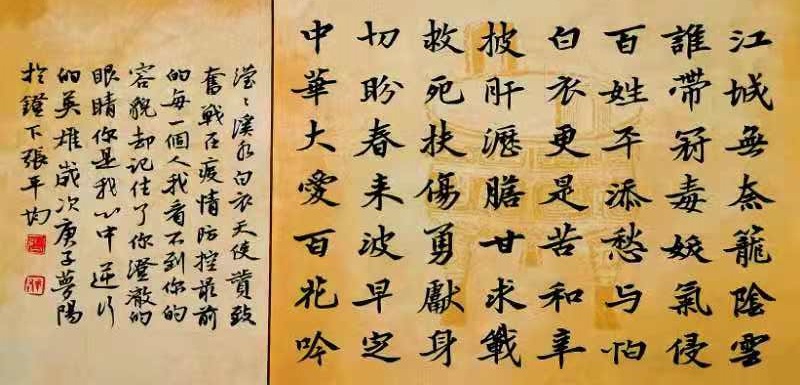 江城無奈籠陰雲
誰帶冠毒妖氣侵
百姓平添愁与怕
白衣更是苦和辛
披肝瀝膽甘求戰
救死扶傷勇獻身
切盼春來波早定
中華大愛百花吟
溪水白衣天使贊致
奮戰在疫情防控最前
的每一個人我看不到你的
容貌却記住了你澄澈的
眼睛你是我心中逆行
的英雄歲次庚子夢陽
於鐙下張平均